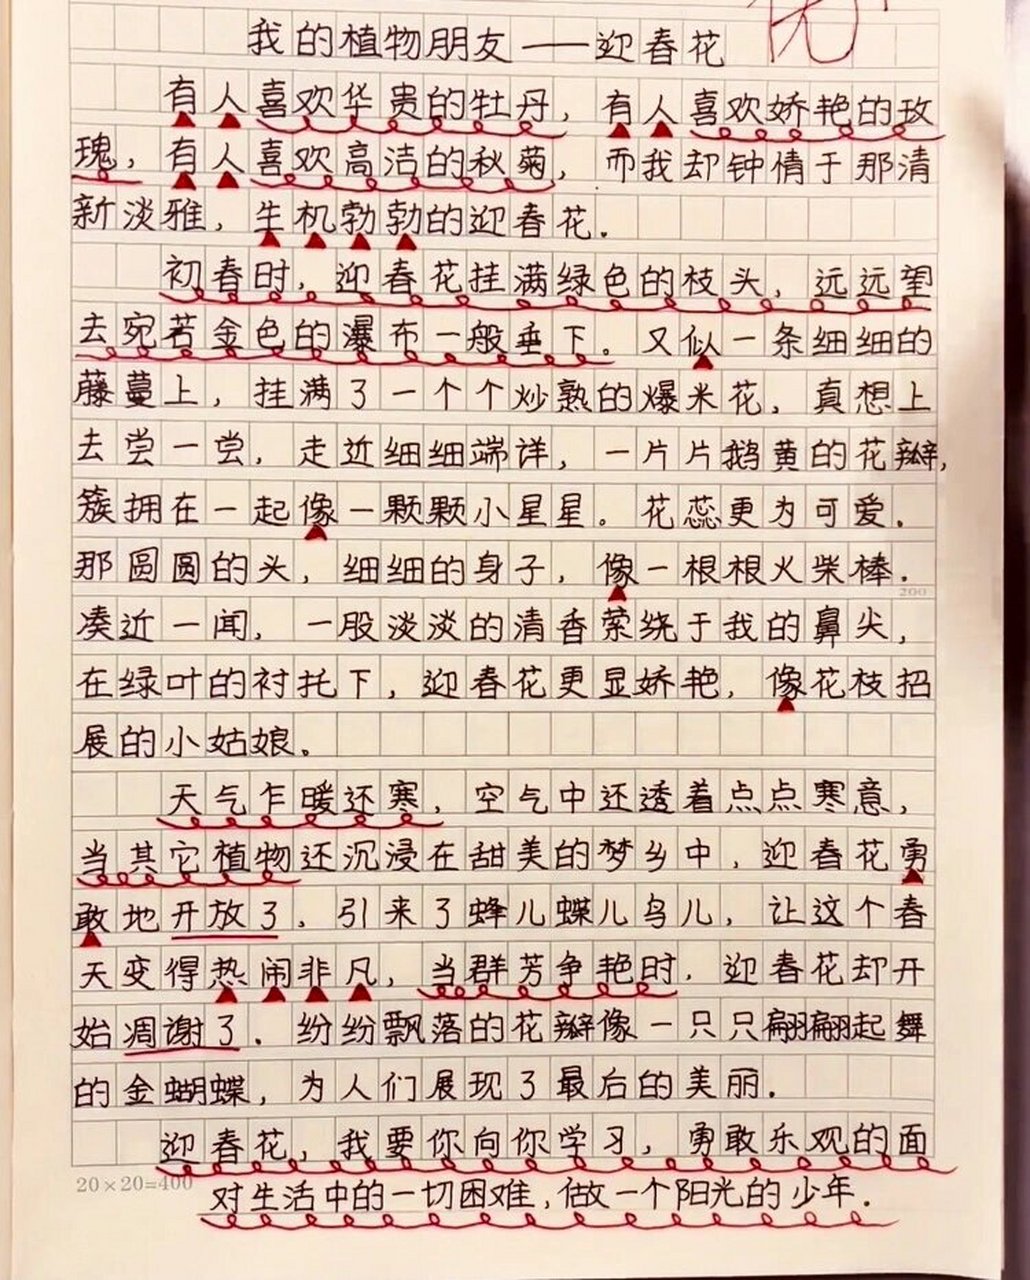 我的植物朋友——迎春花
有人喜欢华贵的牡丹，有人喜欢娇艳的玫
瑰，有人喜欢高洁的秋菊，而我却钟情于那清
新淡雅，生机勃勃的迎春花.
初春时，迎春花挂满绿色的枝头，远远望
去宛若金色的瀑布一般垂下。又似一条细细的
藤蔓上，挂满了一个个炒熟的爆米花，真想上
去尝一尝，走近细细端详，一片片鹅黄的花瓣，
簇拥在一起像一颗颗小星星。花蕊更为可爱.
那圆圆的头，细细的身子，像一根根火柴棒.
200
凑近一闻，一股淡淡的清香萦绕于我的鼻尖，
在绿叶的衬托下，迎春花更显娇艳，像花枝招
展的小姑娘。
天气乍暖还寒，空气中还透着点点寒意，
当其它植物还沉浸在甜美的梦乡中，迎春花勇
敢地开放了.引来了蜂儿蝶儿鸟儿，让这个春
天变得热闹非凡，当群芳争艳时，迎春花却开
始凋谢了.纷纷飘落的花瓣像一只只翩翩起舞
的金蝴蝶，为人们展现了最后的美丽.
迎春花，我要你向你学习，勇敢乐观的面
20×20=400
对生活中的一切困难，做一个阳光的少年.